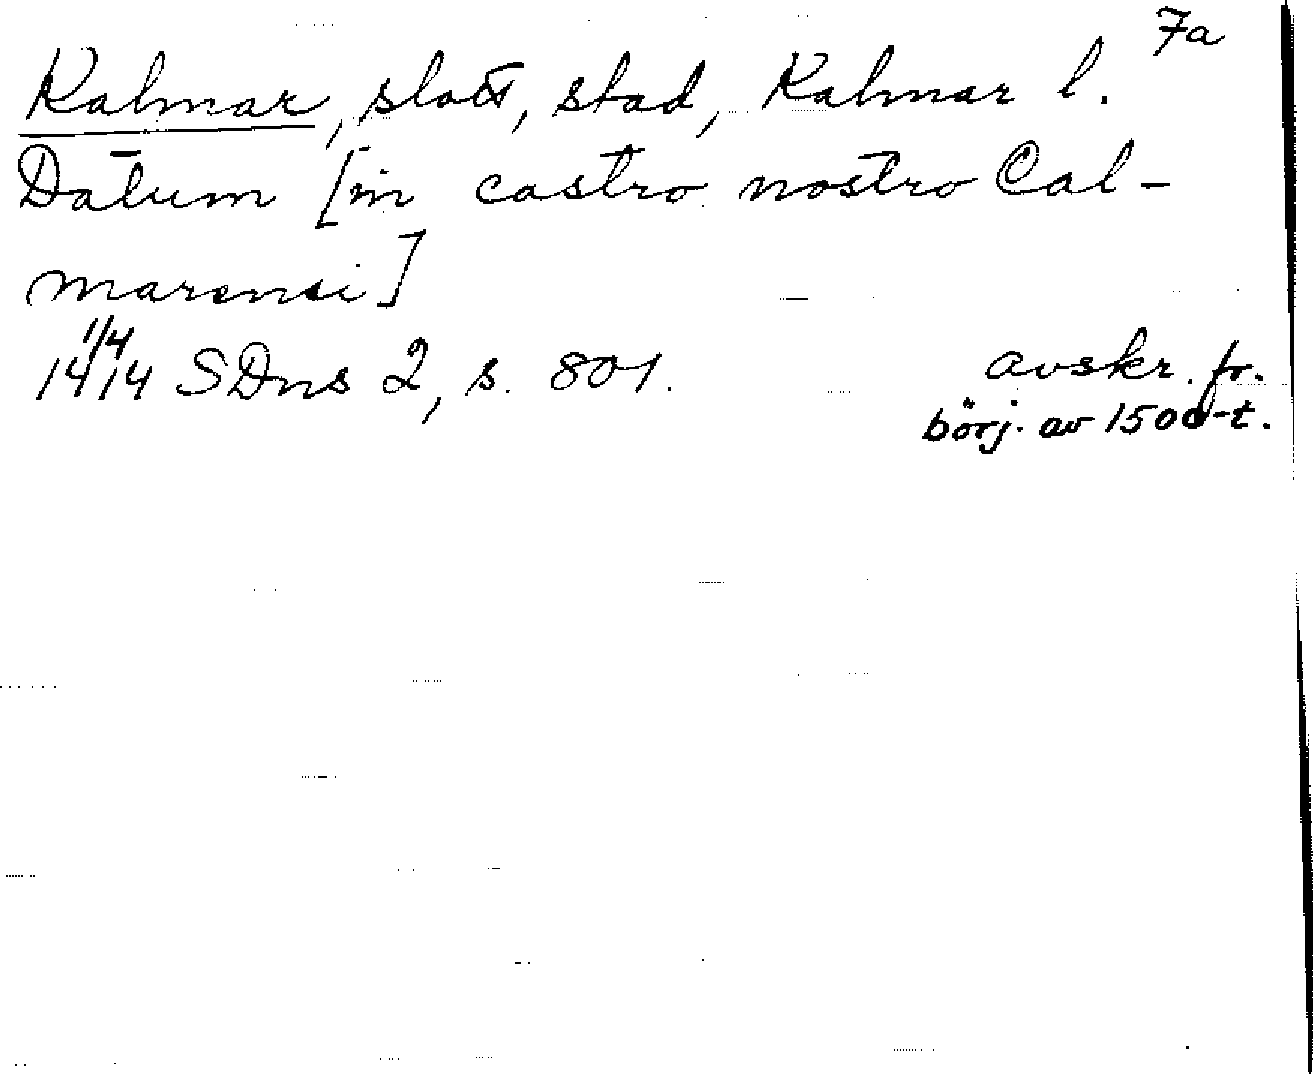 7a
Kalmar, slott, stad, Kalmar l.
Datum [in castro nostro Cal-
marensi]
1414 1/4 SDns 2, s. 801. avskr. fr.
börj. av 1500-t.